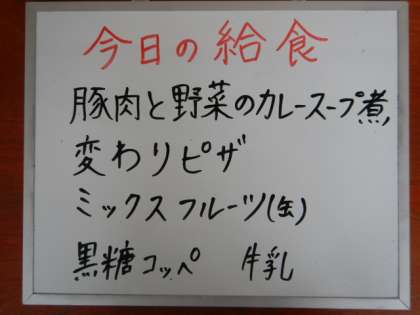 今日の給食
豚肉と野菜のカレースープ煮
変わりピザ
ミックスフルーツ(缶)
黒糖コッペ 牛乳